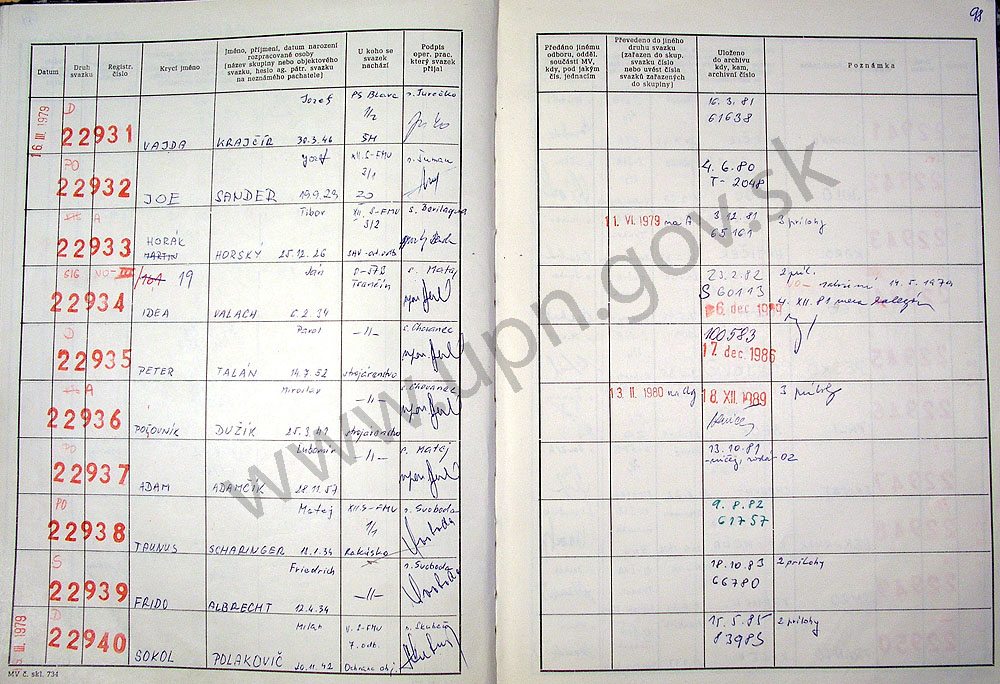 98
Datum
Druh svazku
Registr. číslo
Krycí jméno
Jméno, příjmení, datum narození
rozpracované osoby
(název skupiny nebo objektového
svazku, heslo ag. pátr. svazku
na neznámého pachatele)
U koho se
svazek
nachází
Podpis
oper. prac.
který svazek
přijal
Předáno jinému
odboru, odděl.
součásti MV,
kdy, pod jakým
čís. jednacím
Převedeno do jiného
druhu svazku
(zařazen do skup.
svazku číslo
nebo uvést čísla
svazků zařazených
do skupiny)
Uloženo
do archivu
kdy, kam,
archivní číslo
Poznámka
16. III. 1979
D
22931
VAJDA
Jozef
KRAJČÍR 30.3.46
1/2
16.3.81
61638
PO
22932
JOE
Jozef
SANDER 19.9.29
XII. S-FMU
2/1
4.6.80
T-2048
A
22933
HORÁK
MARTIN
Tibor
HORSKÝ 25.12.26
XII. S-FMU
3/2
11. VI. 1979 na A
3.12.81
65161
3 prílohy
22934
19
IDEA
Ján
VALACH 6.2.34
Trenčín
r. Matej
23.2.82
S 60113
6. dec. 1989
2 príl.
14.5.1979
4. XII. 81
D
22935
PETER
Pavol
TALÁN 14.7.52
-11-
strojárenstvo
r. Chovanec
100583
17. dec. 1986
A
22936
POĽOVNÍK
Miroslav
DUŽÍK 25.3.41
-11-
strojárenstvo
r. Chovanec
13. II. 1980 na
18. XII. 1989
3 prílohy
PO
22937
ADAM
Ľubomír
ADAMČÍK 28.11.57
-11-
r. Matej
13.10.81
02
PO
22938
TAUNUS
Matej
SCHARINGER 18.1.34
XII.S-FMU
1/1
Rakúsko
r. Svoboda
9.8.82
61757
S
22939
FRIDO
Friedrich
ALBRECHT 12.4.34
-11-
r. Svoboda
18.10.83
66780
2 prílohy
III. 1979
D
22940
SOKOL
Milan
POLAKOVIČ 20.11.42
V. S-FMU
7. odb.
Ochrana obj.
15.5.85
83985
2 prílohy
MV č. skl. 734
www.upn.gov.sk